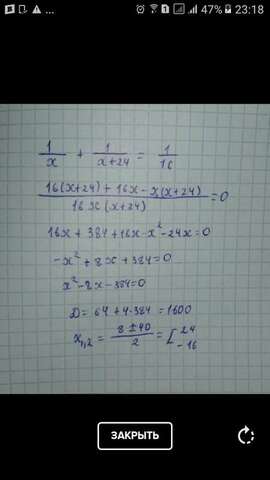 47% 23:18
1/x + 1/(x+24) = 1/16
(16(x+24) + 16x - x(x+24))/(16x(x+24)) = 0
16x + 384 + 16x - x² - 24x = 0
-x² + 8x + 384 = 0
x² - 8x - 384 = 0
D = 64 + 4·384 = 1600
x₁,₂ = (8 ± 40)/2 = [24
-16
ЗАКРЫТЬ